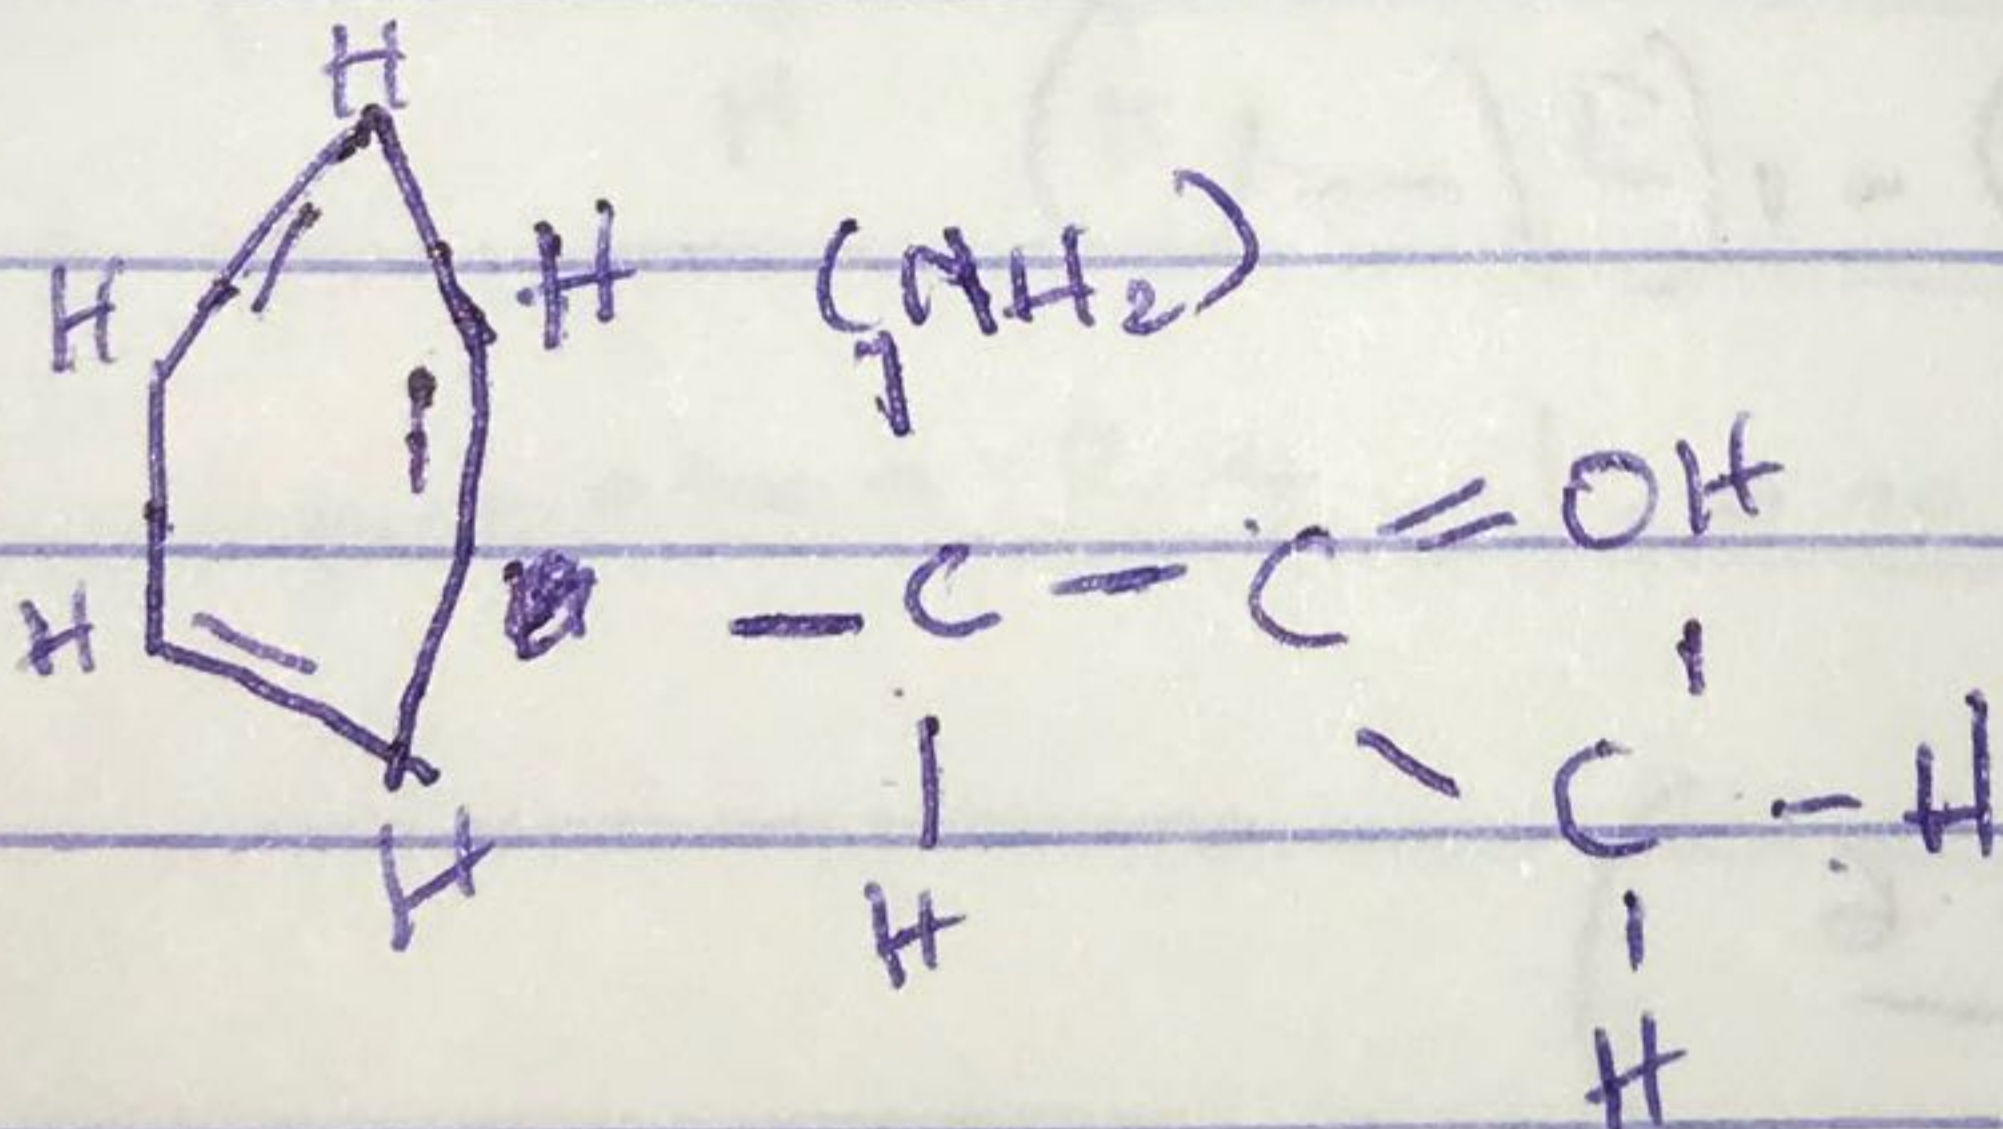 H
H H (NH2)
C = OH
H - C - C
C - H
H H
H